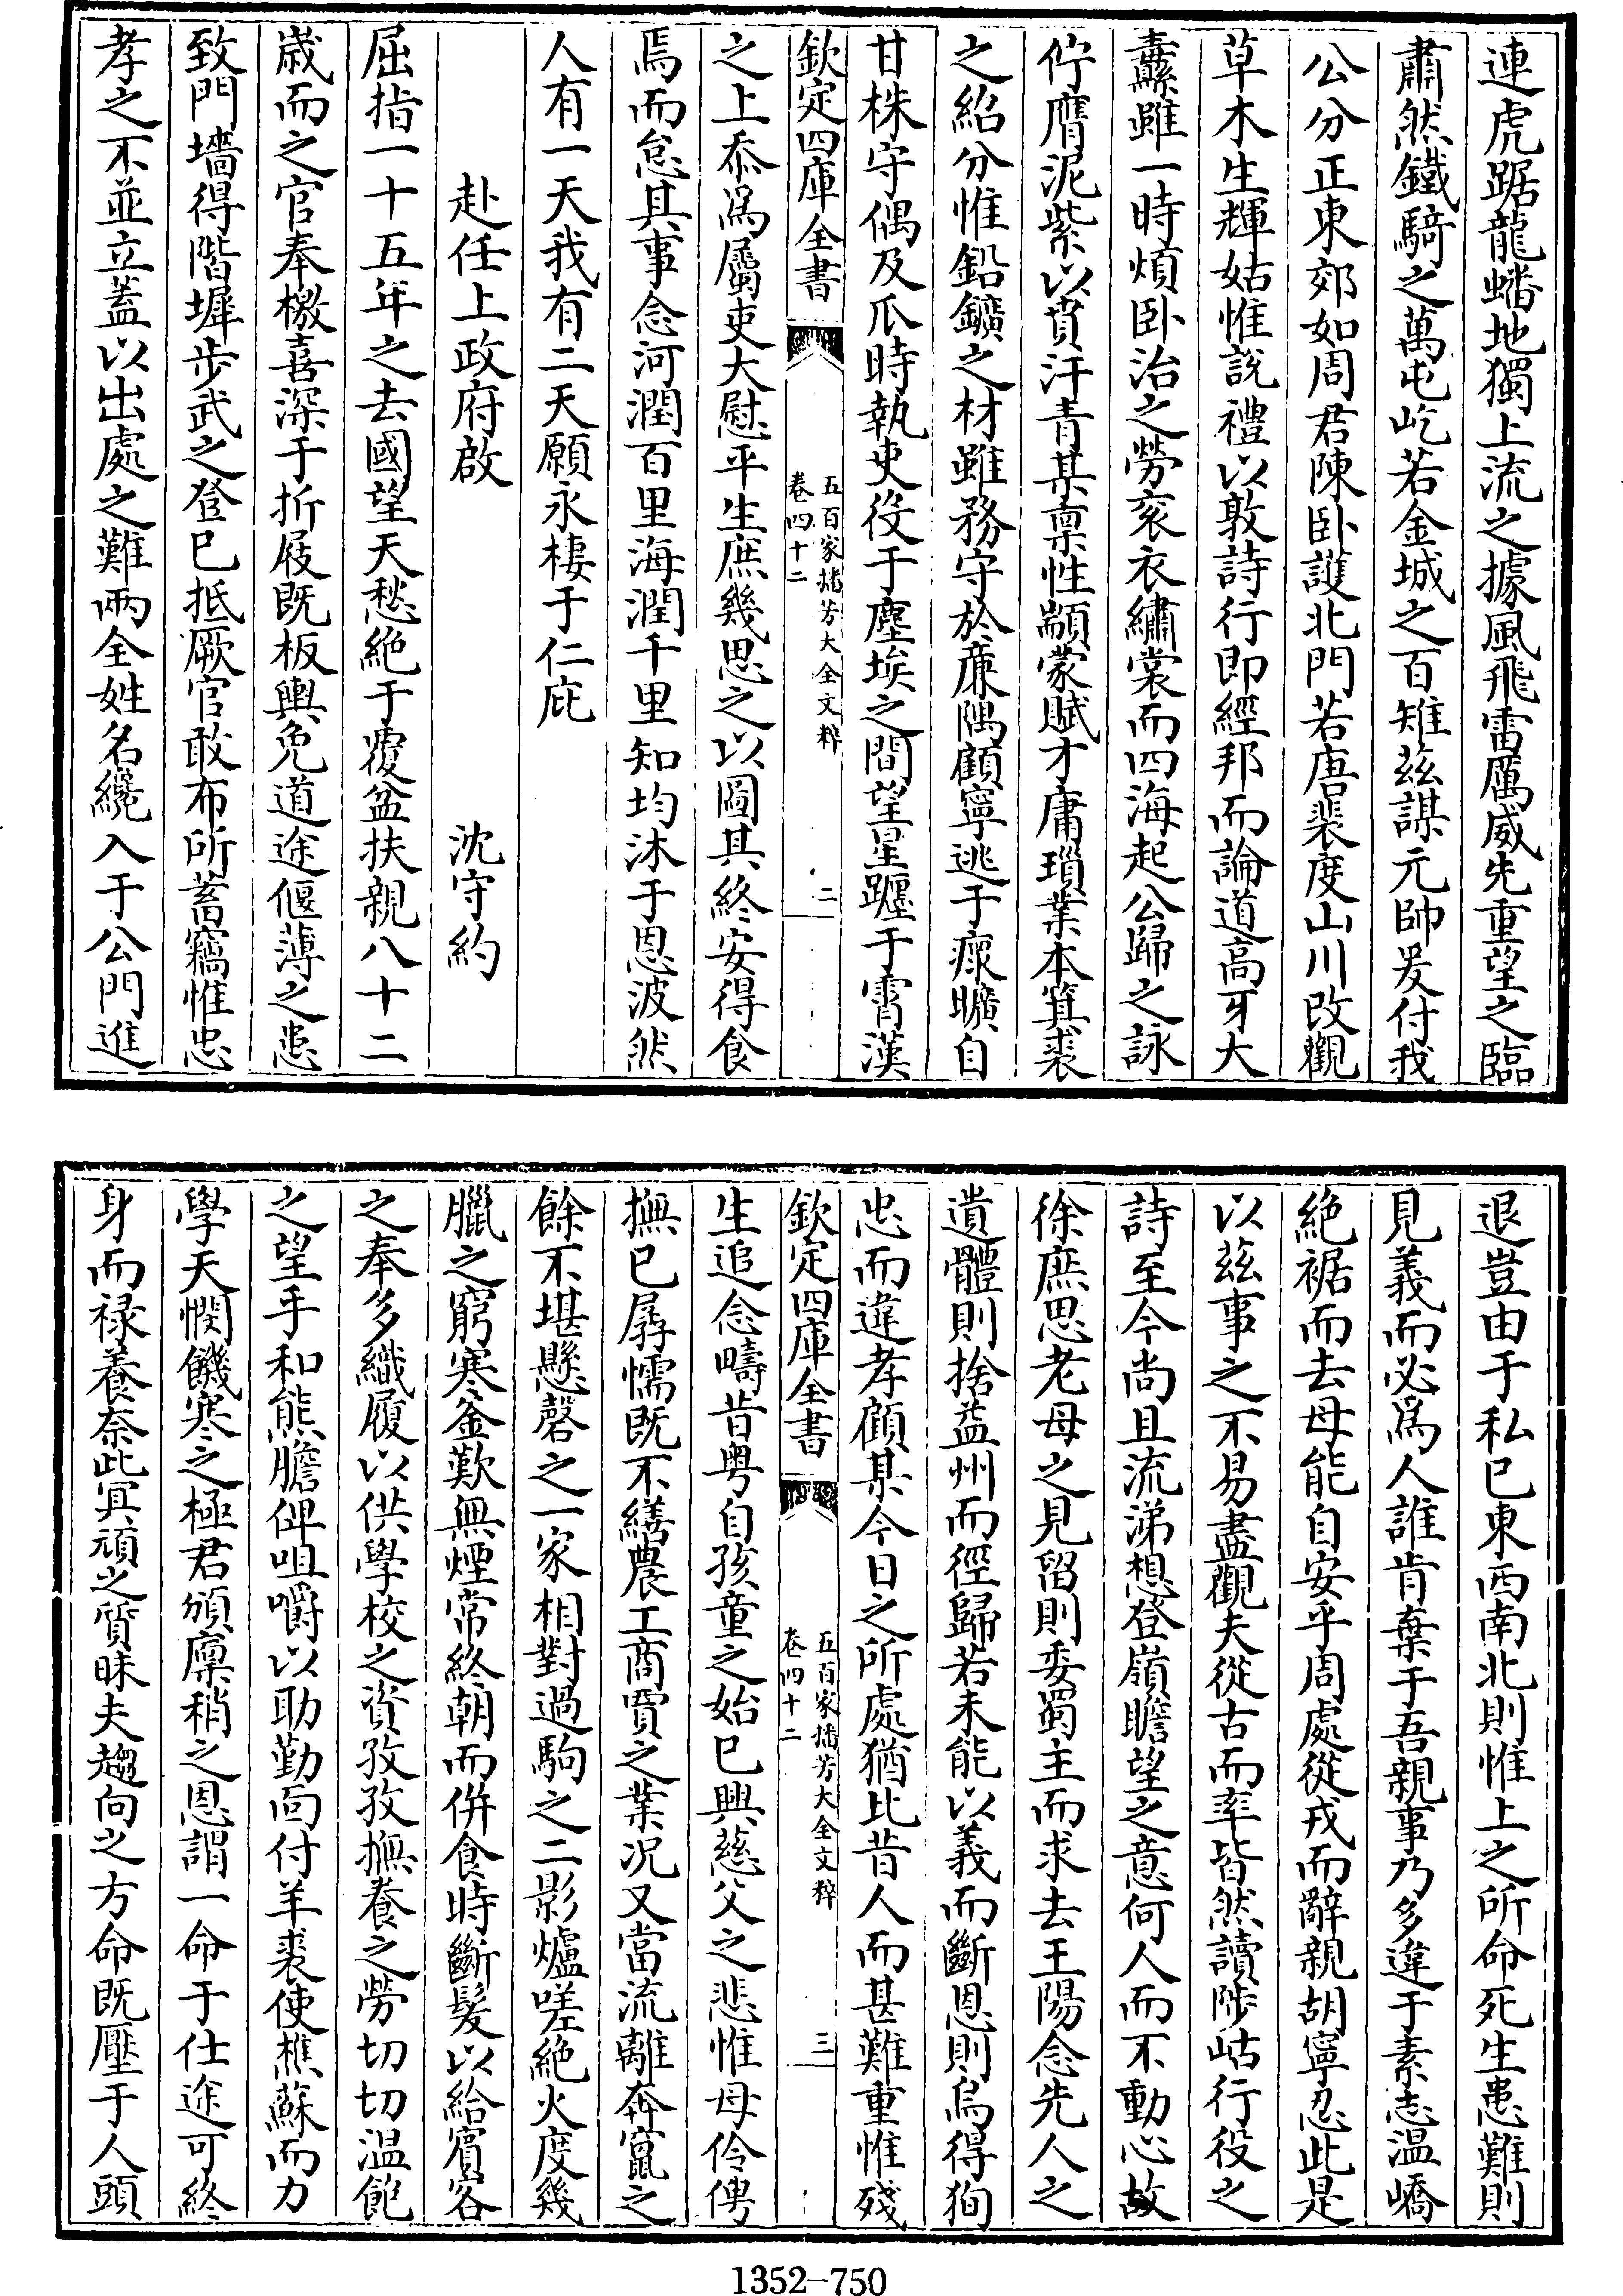 連虎踞龍蟠地獨上流之據風飛雷厲威先重望之臨
肅然鐵騎之萬屯屹若金城之百雉兹謀元帥爰付我
公分正東郊如周君陳卧護北門若唐裴度山川改觀
草木生輝姑惟説禮以敦詩行即經邦而論道高牙大
纛雖一時煩卧治之勞衮衣繡裳而四海起公歸之詠
佇膺泥紫以賁汗青某禀性顓蒙賦才庸瑣業本箕裘
之紹分惟鉛鑛之材雖務守於廉隅顧寧逃于瘝曠自
甘株守偶及瓜時執吏役于塵埃之間望星躔于霄漢
欽定四庫全書
五百家播芳大全文粹
卷四十二
二
之上忝為屬吏大慰平生庶幾思之以圖其終安得食
焉而怠其事念河潤百里海潤千里知均沐于恩波然
人有一天我有二天願永棲于仁庇
赴任上政府啟 沈守約
屈指一十五年之去國望天愁絶于覆盆扶親八十二
嵗而之官奉檄喜深于折屐既板輿免道途偃薄之患
致門墻得階墀步武之登已抵厥官敢布所蓄竊惟忠
孝之不並立蓋以出處之難兩全姓名纔入于公門進
退豈由于私已東西南北則惟上之所命死生患難則
見義而必為人誰肯棄于吾親事乃多違于素志温嶠
絶裾而去母能自安乎周處從戎而辭親胡寧忍此是
以兹事之不易盡觀夫從古而率皆然讀陟岵行役之
詩至今尚且流涕想登嶺瞻望之意何人而不動心故
徐庶思老母之見留則委蜀主而求去王陽念先人之
遺體則捨益州而徑歸若未能以義而斷恩則烏得狥
忠而違孝顧某今日之所處猶比昔人而甚難重惟殘
欽定四庫全書
五百家播芳大全文粹
卷四十二
三
生追念疇昔粤自孩童之始已興慈父之悲惟母伶俜
撫已孱懦既不繕農工商賈之業况又當流離奔竄之
餘不堪懸磬之一家相對過駒之二影爐嗟絶火度幾
臘之窮寒釜歎無煙常終朝而併食時斷髮以給賓客
之奉多織履以供學校之資孜孜撫養之勞切切温飽
之望手和熊膽俾咀嚼以助勤面付羊裘使樵蘇而力
學天憫饑寒之極君頒廩稍之恩謂一命于仕途可終
身而禄養奈此冥頑之質昧夫趨向之方命既壓于人頭
1352-750